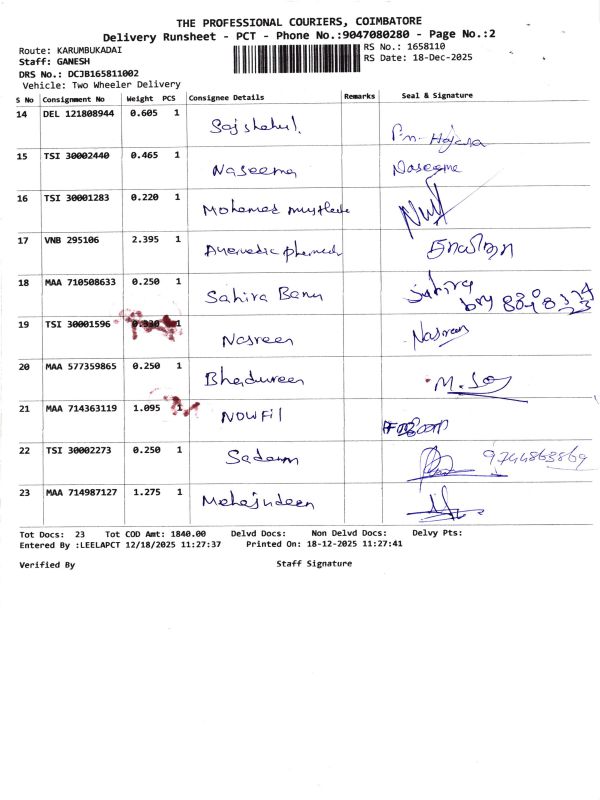 THE PROFESSIONAL COURIERS, COIMBATORE
Delivery Runsheet - PCT - Phone No.:9047080280 - Page No.:2
Route: KARUMBUKADAI
RS No.: 1658110
Staff: GANESH
RS Date: 18-Dec-2025
DRS No.: DCJB165811002
Vehicle: Two Wheeler Delivery
S No Consignment No Weight PCS Consignee Details Remarks Seal & Signature
14 DEL 121808944 0.605 1
15 TSI 30002440 0.465 1 Naseema Naseema
16 TSI 30001283 0.220 1 Mohamed
17 VNB 295106 2.395 1 Ayurvedic
18 MAA 710508633 0.250 1 Sahira Banu Sahira
19 TSI 30001596 0.330 1 Nasreen Nasreen
20 MAA 577359865 0.250 1
21 MAA 714363119 1.095 1 NOWFil
22 TSI 30002273 0.250 1 9744863869
23 MAA 714987127 1.275 1
Tot Docs: 23 Tot COD Amt: 1840.00 Delvd Docs: Non Delvd Docs: Delvy Pts:
Entered By :LEELAPCT 12/18/2025 11:27:37 Printed On: 18-12-2025 11:27:41
Verified By Staff Signature